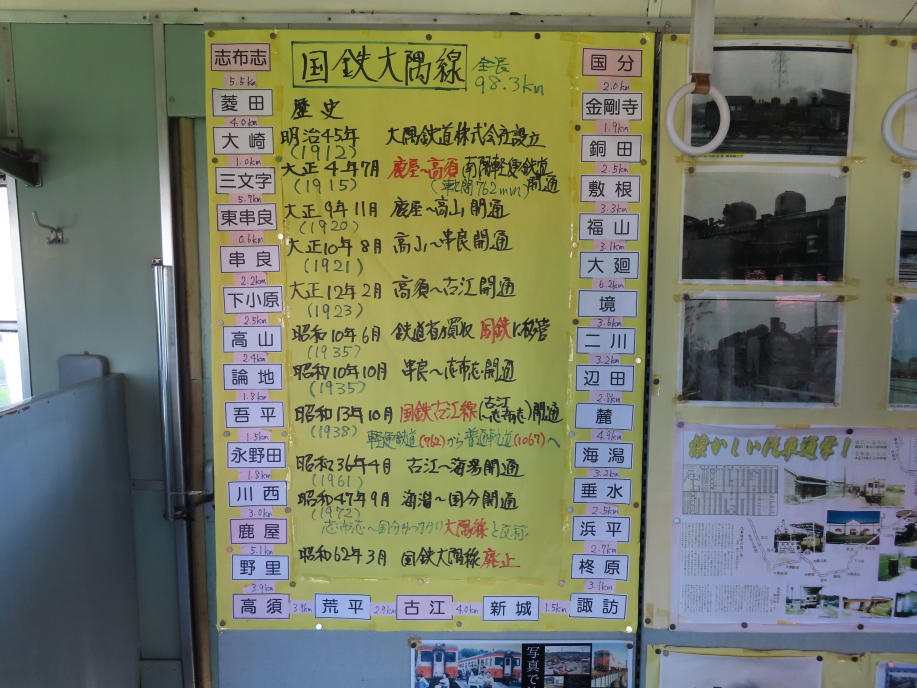 国鉄大隅線 全長
98.3km
歴史
明治45年 大隅鉄道株式会社設立
(1912)
大正4年7月 鹿屋~高須(南隅軽便鉄道
(1915) (軌間762mm) 開通
大正9年11月 鹿屋~高山 開通
(1920)
大正10年8月 高山~串良開通
(1921)
大正12年2月 高須~古江開通
(1923)
昭和10年6月 鉄道省買収 国鉄に移管
(1935)
昭和10年10月 串良~志布志開通
(1935)
昭和13年10月 国鉄古江線(古江~志布志)開通
(1938) 軽便鉄道(762)から普通軌道(1067)へ
昭和36年4月 古江~海潟開通
(1961)
昭和47年9月 海潟~国分開通
(1972)
志布志~国分がつながり大隅線と改称
昭和62年3月 国鉄大隅線廃止
志布志
5.5km
菱田
4.0km
大崎
1.0km
三文字
5.7km
東串良
0.6km
串良
2.2km
下小原
2.5km
高山
2.4km
論地
1.8km
吾平
1.5km
永野田
1.8km
川西
3.0km
鹿屋
5.1km
野里
3.9km
高須 3.9km 荒平 2.9km 古江 4.0km 新城 1.5km 諏訪
国分
2.0km
金剛寺
1.9km
銅田
2.5km
敷根
3.3km
福山
3.1km
大廻
6.2km
境
3.6km
二川
3.2km
辺田
2.8km
麓
4.9km
海潟
3.2km
垂水
2.5km
浜平
2.7km
柊原
3.1km
懐かしい汽車通学!
写真で